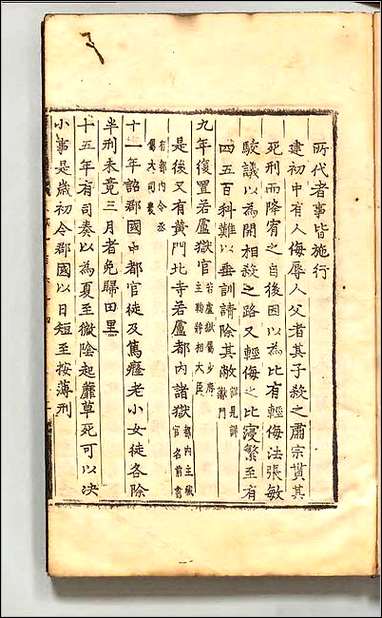 所代者事皆施行
建初中有人侮辱人父者其子殺之肅宗貰其
死刑而降宥之自後因以為比有輕侮法張敏
駮議以為開相殺之路又輕侮之比寖繁至有
四五百科難以垂訓請除其敝
九年復置若盧獄官若盧獄屬少府主鞫將相大臣
是後又有黃門北寺若盧都內諸獄都內主藏官名前書有都內令丞屬大司農
十一年詔郡國中都官徒及篤癃老小女徒各除
半刑未竟三月者免歸田里
十五年有司奏以為夏至微陰起靡草死可以決
小事是歲初令郡國以日短至按薄刑